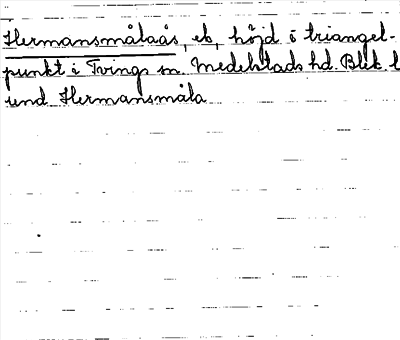 Hermansmålaås, eb, höjd o triangel-
punkt i Tvings sn. Medelstads hd. Blek. l
und Hermansmåla